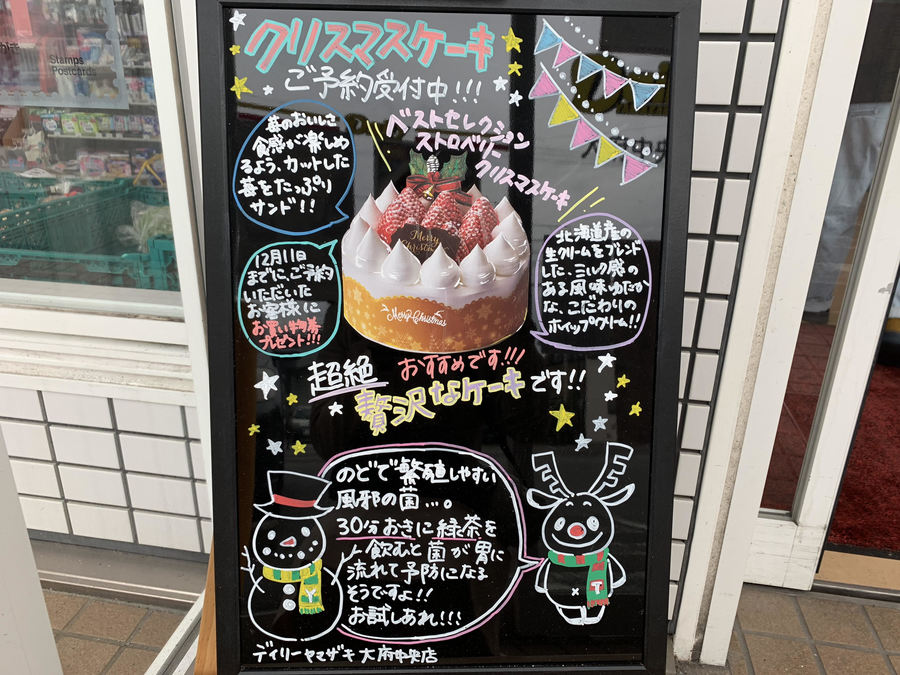 Stamps
Postcards
クリスマスケーキ
ご予約受付中!!!
ベストセレクション
ストロベリー
クリスマスケーキ
苺のおいしさ
食感が楽しめ
るよう、カットした
苺をたっぷり
サンド!!
12月11日
までに、ご予約
いただいた
お客様に
お買い物券
プレゼント!!!
Merry
Christmas
Merry Christmas
北海道産の
生クリームをブレンド
した、ミルク感の
ある風味ゆたか
な、こだわりの
ホイップクリーム!!
おすすめです!!!
超絶
贅沢なケーキです!!
のどで繁殖しやすい
風邪の菌…。
30分おきに緑茶を
飲むと菌が胃に
流れて予防になる
そうですよ!!
お試しあれ!!!
Y
T
デイリーヤマザキ 大府中央店